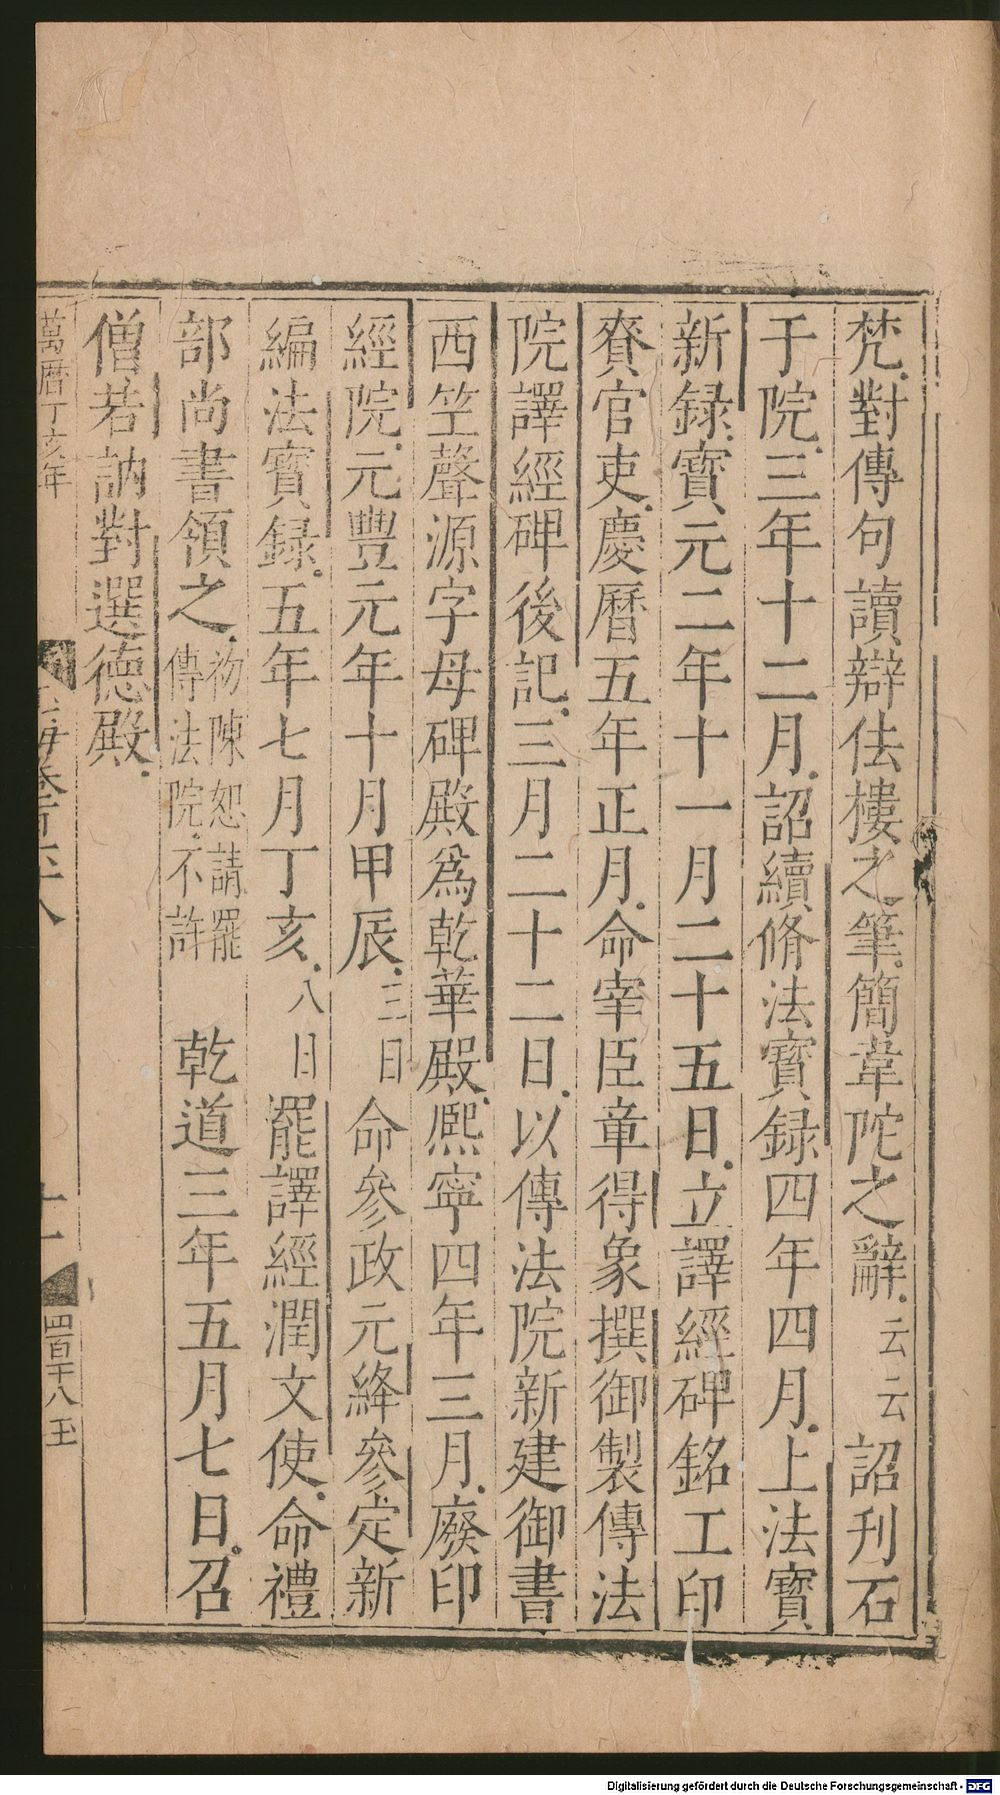 梵對傳句讀辯佉樓之筆簡韋陀之辭云云詔刋石
于院三年十二月詔續脩法寶録四年四月上法寶
新録寶元二年十一月二十五日立譯經碑銘工印
賚官吏慶曆五年正月命宰臣章得象撰御製傳法
院譯經碑後記三月二十二日以傳法院新建御書
西竺聲源字母碑殿爲乾華殿熈寧四年三月廢印
經院元豐元年十月甲辰三日命參政元絳參定新
編法寶録五年七月丁亥八日罷譯經潤文使命禮
部尚書領之初陳恕請罷傳法院不許 乾道三年五月七日召
僧若訥對選德殿
萬曆丁亥年
海卷 六十八
十一
四百十八 玉
Digitalisierung gefördert durch die Deutsche Forschungsgemeinschaft - DFG